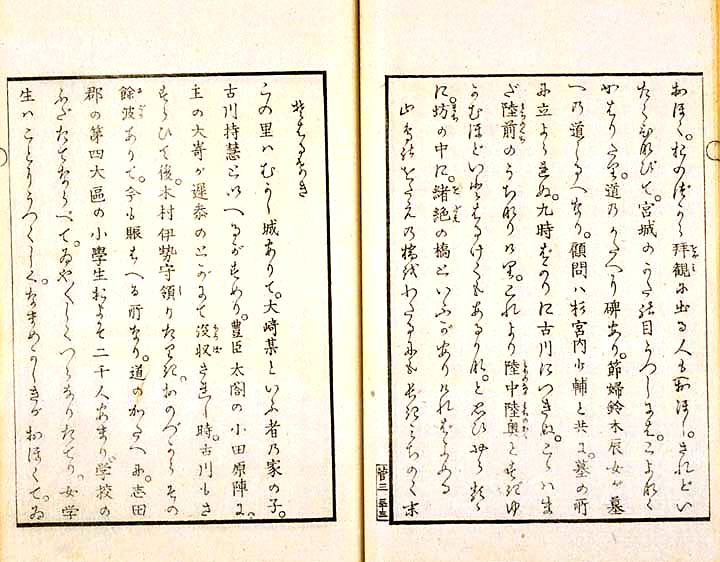 おほく。拝観に出る人もおほし。されどい
たくひなびて。宮城のかたうつしにはこよなく
かはりたり。道のかたへに碑あり。節婦鈴木辰女が墓
への道しるべなり。顧問ハ杉宮内少輔と共に。墓の所
に立よられぬ。九時ばかりに古川につきぬ。こゝハま
だ陸前のうちなり。これより陸中陸奥とすぎゆ
かむほどいかにはるけくもあるかな。と思ひやらるゝ
に。坊の中に。緒絶の橋といふがありければよめる
をだえの橋をわたるにもみちのく末
菅三
この里ハむかし城ありて。大崎某といふ者の家の子。
古川持慧といへるがすめり。豊臣太閤の小田原陣に。
主の大崎が遅参のとがにて没収されし時。古川もさ
すらひて後。木村伊勢守領りたりき。おのづからその
餘波ありて。今も賑はへる所なり。道のかたへに。志田
郡の第四大區の小學生およそ二千人あまり。学校の
ふだたてならべて。ゐや〳〵しくつらなりたてり。女学
生ハことにうつくしく。なまめかしきがおほくて。ゐ